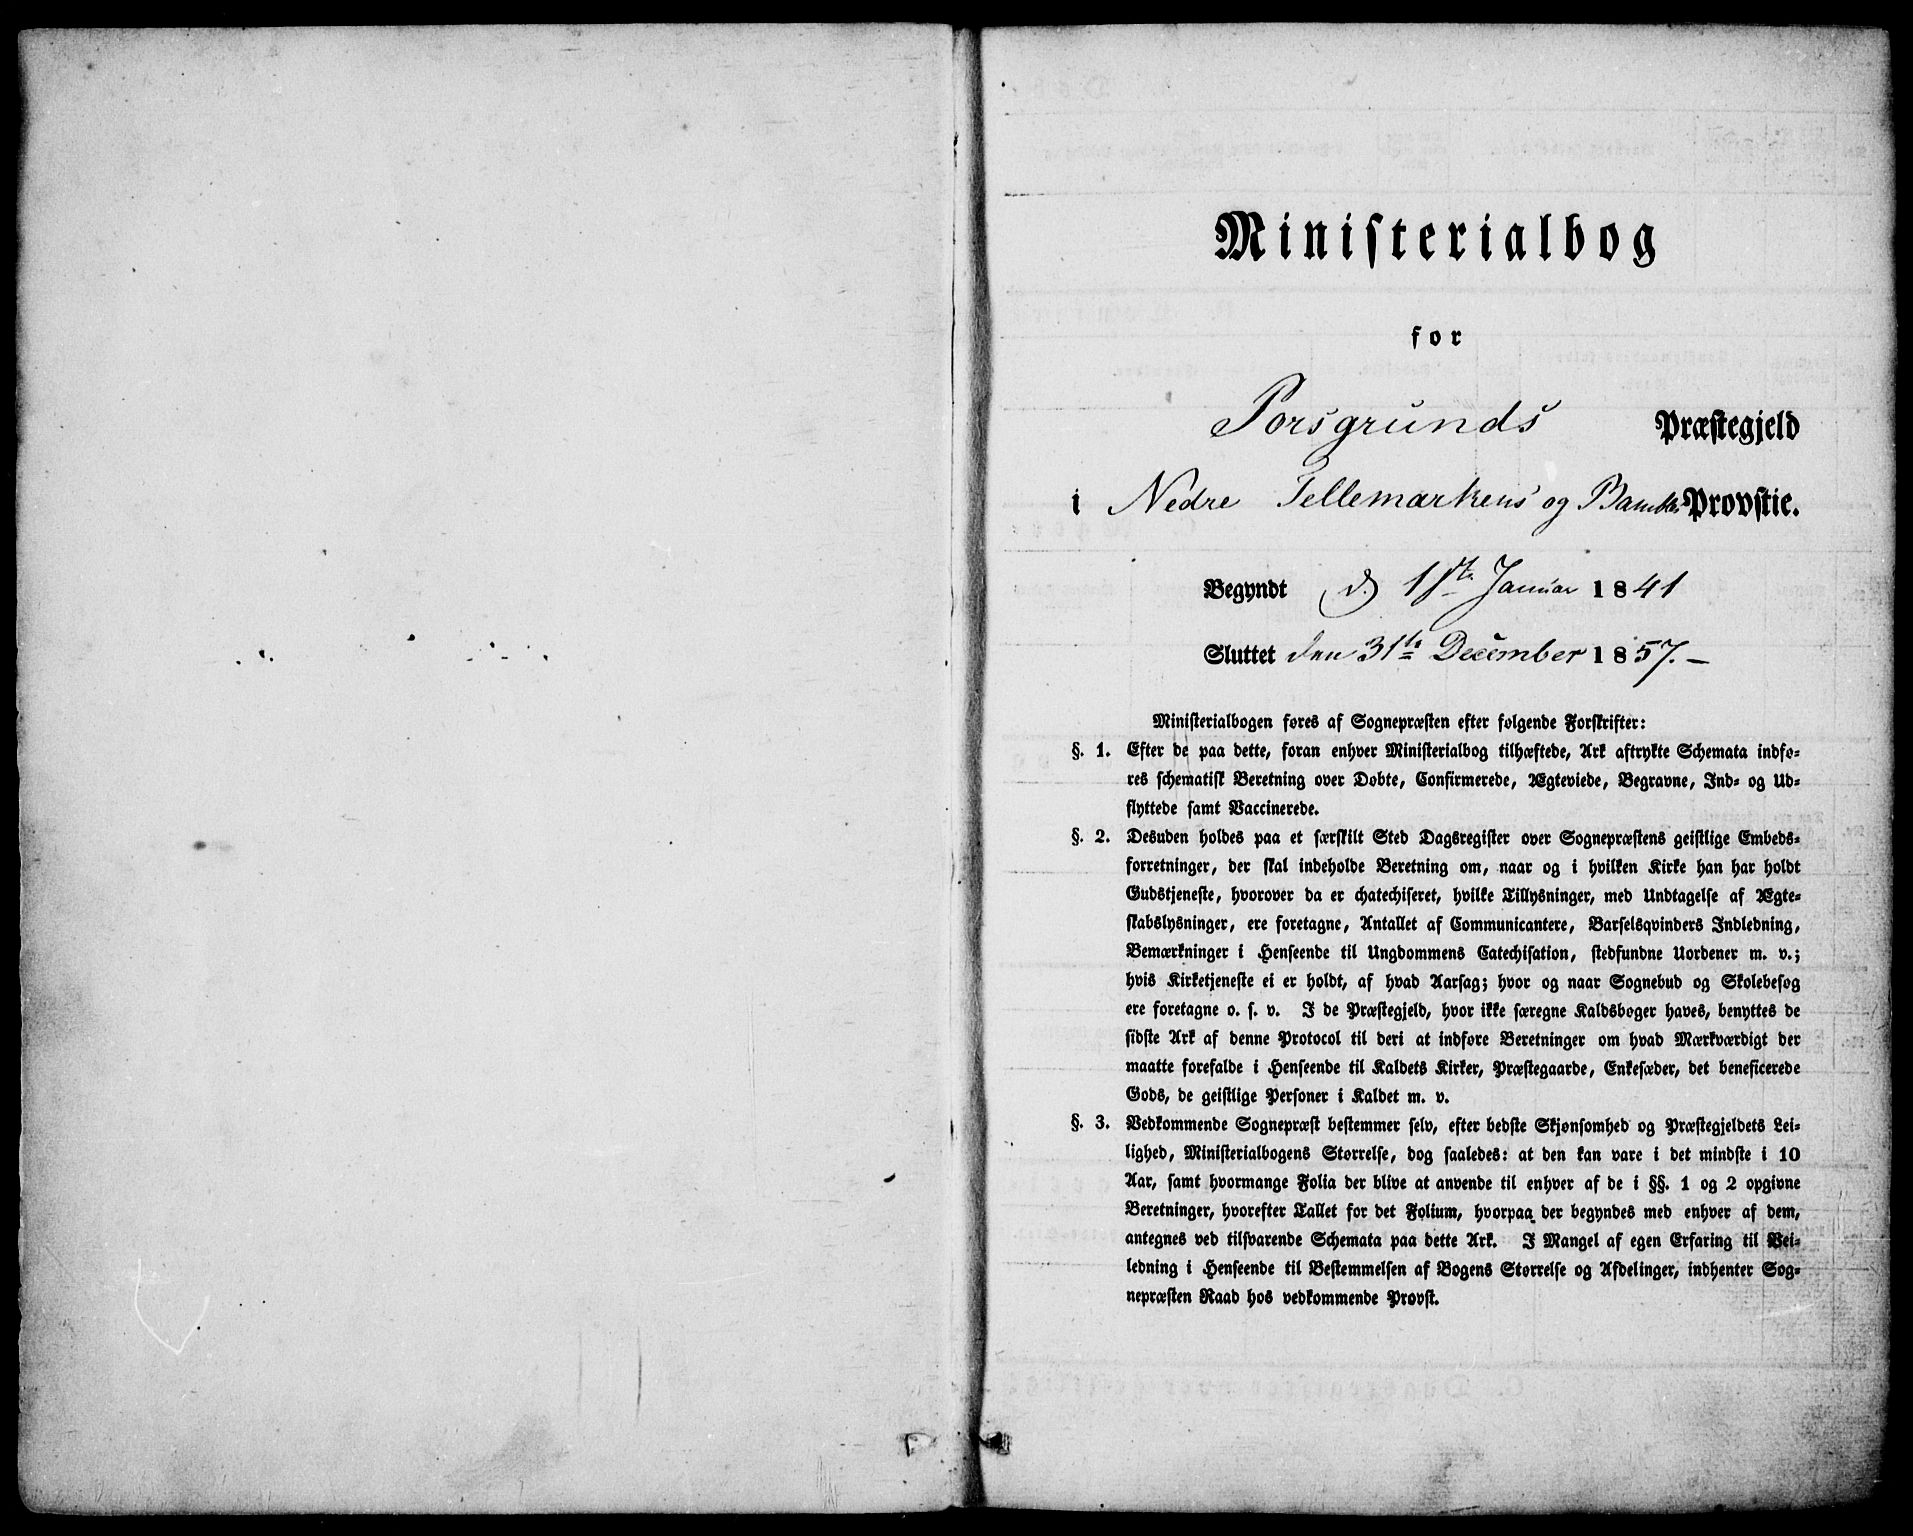 Ministerialbog
for
Porsgrunds Præstegjeld
i Nedre Tellemarkens og Bamble Provstie.
Begyndt d. 1ste Januar 1841
Sluttet den 31te December 1857. –
Ministerialbogen føres af Sognepræsten efter følgende Forskrifter:
§. 1. Efter de paa dette, foran enhver Ministerialbog tilhæftede, Ark aftrykte Schemata indfø-
res schematisk Beretning over Døbte, Confirmerede, Ægteviede, Begravne, Ind- og Ud-
flyttede samt Vaccinerede.
§. 2. Desuden holdes paa et særskilt Sted Dagsregister over Sognepræstens geistlige Embeds-
forretninger, der skal indeholde Beretning om, naar og i hvilken Kirke han har holdt
Gudstjeneste, hvorover da er chatechiseret, hvilke Tillysninger, med Undtagelse af Ægte-
skabslysninger, ere foretagne, Antallet af Communicantere, Barselqvinders Indledning,
Bemærkninger i Henseende til Ungdommens Catechisation, stedfundne Uordener m. v.;
hvis Kirketjeneste ei er holdt, af hvad Aarsag; hvor og naar Sognebud og Skolebesøg
ere foretagne o. s. v. I de Præstegjeld, hvor ikke særegne Kaldsbøger haves, benyttes de
sidste Ark af denne Protocol til deri at indføre Beretninger om hvad Mærkværdigt der
maatte forefalde i Henseende til Kaldets Kirker, Præstegaarde, Enkesæder, det beneficerede
Gods, de geistlige Personer i Kaldet m. v.
§. 3. Vedkommende Sognepræst bestemmer selv, efter bedste Skjønsomhed og Præstegjeldets Lei-
lighed, Ministerialbogens Størrelse, dog saaledes: at den kan vare i det mindste i 10
Aar, samt hvormange Folia der blive at anvende til enhver af de i §§. 1 og 2 opgivne
Beretninger, hvorefter Tallet for det Folium, hvorpaa der begyndes med enhver af dem,
antegnes ved tilsvarende Schemata paa dette Ark. I Mangel af egen Erfaring til Vei-
ledning i Henseende til Bestemmelsen af Bogens Størrelse og Afdelinger, indhenter Sog-
nepræsten Raad hos vedkommende Provst.